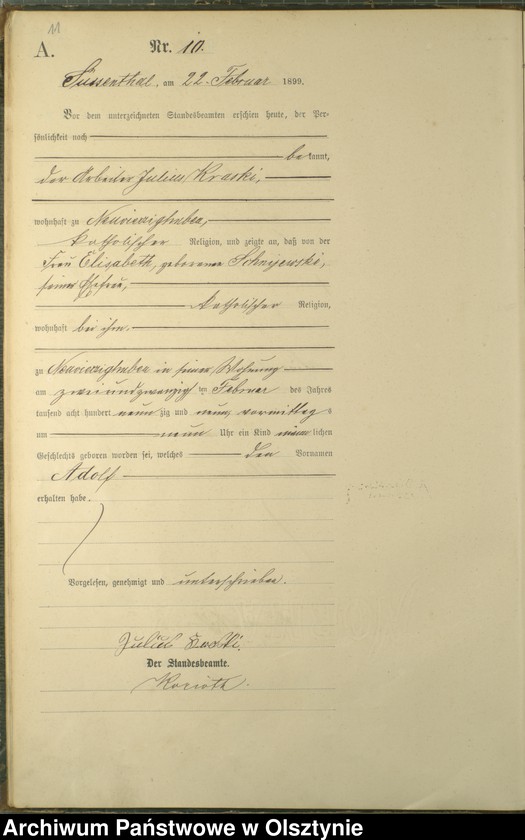 11
A.
Nr. 10.
Süssenthal, am 22. Februar 1899.
Vor dem unterzeichneten Standesbeamten erschien heute, der Per-
sönlichkeit nach
bekannt,
der Arbeiter Julius Kraski,
wohnhaft zu Neuvierzighuben,
katholischer Religion, und zeigte an, daß von der
Frau Elisabeth, geborenen
seiner Ehefrau,
katholischer Religion,
wohnhaft bei ihm.
zu Neuvierzighuben in seiner Wohnung
am zweiundzwanzigsten Februar des Jahres
tausend acht hundert neunzig und neun, vormittags
um neun Uhr ein Kind männlichen
Geschlechts geboren worden sei, welches den Vornamen
Adolf
erhalten habe.
Vorgelesen, genehmigt und unterschrieben.
Julius
Der Standesbeamte.
Archiwum Państwowe w Olsztynie